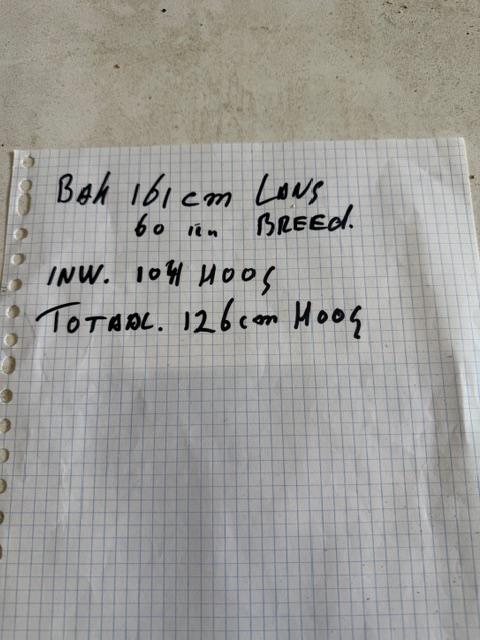 BAK 161 cm LANG
60 BREED.
INW. HOOG
TOTAAL. 126 cm HOOG